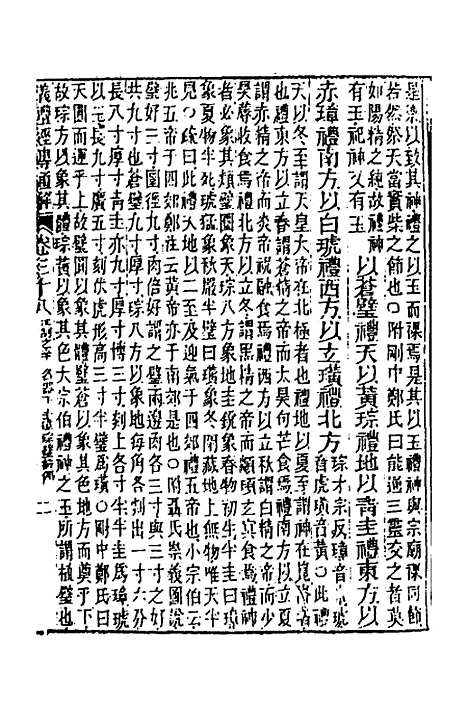 是樂以致其神禮之以玉而祼焉是其以玉禮神與宗廟祼同節
若然祭天當實柴之節也○附剛中鄭氏曰能通三靈交之者莫
如陽精之純故禮神
有玉祀神又有玉
以蒼璧禮天以黃琮禮地以青圭禮東方以
赤璋禮南方以白琥禮西方以玄璜禮北方
琮才宗反璋音章琥
音虎璜音黃○此禮
天以冬至謂天皇大帝在北極者也禮地以夏至謂神在崑崙者
也禮東方以立春謂蒼精之帝而太昊句芒食焉禮南方以立夏
謂赤精之帝而炎帝祝融食焉禮西方以立秋謂白精之帝而少
昊蓐收食焉禮北方以立冬謂黑精之帝而顓頊玄冥食焉禮神
者必象其類璧圜象天琮八方象地圭銳象春物初生半圭曰璋
象夏物半死琥猛象秋嚴半璧曰璜象冬閉藏地上無物唯天半
見○疏曰此禮天地以二至及迎氣于四郊禮五帝也小宗伯云
兆五帝于四郊鄭註云黃帝亦于南郊是也○附聶氏崇義圖說
璧好三寸圍徑九寸肉倍好謂之璧兩邊各三寸與三寸之好
共九寸也蒼璧九寸厚寸琮八方以象地每角各剡出一寸六分
長八寸厚寸青圭亦九寸厚寸博三寸剡上各寸半半圭爲璋琥
以玉長九寸廣五寸刻伏虎形高三寸半璧爲璜○剛中鄭氏曰
天圜而運乎上故璧圜以象其體璧蒼以象其色地方而奠乎下
故琮方以象其體琮黃以象其色大宗伯禮神之玉所謂植璧也
儀禮經傳通解 卷之二十八
二